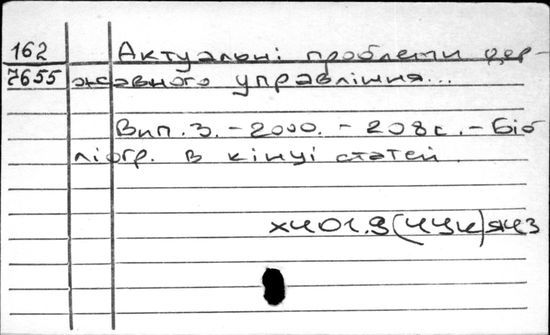 162
7655
Актуальні проблеми дер-
жавного управління...
Вип. 3. - 2000. - 208 с. - Біб
ліогр. в кінці статей
Х401.9(4Ук)я43